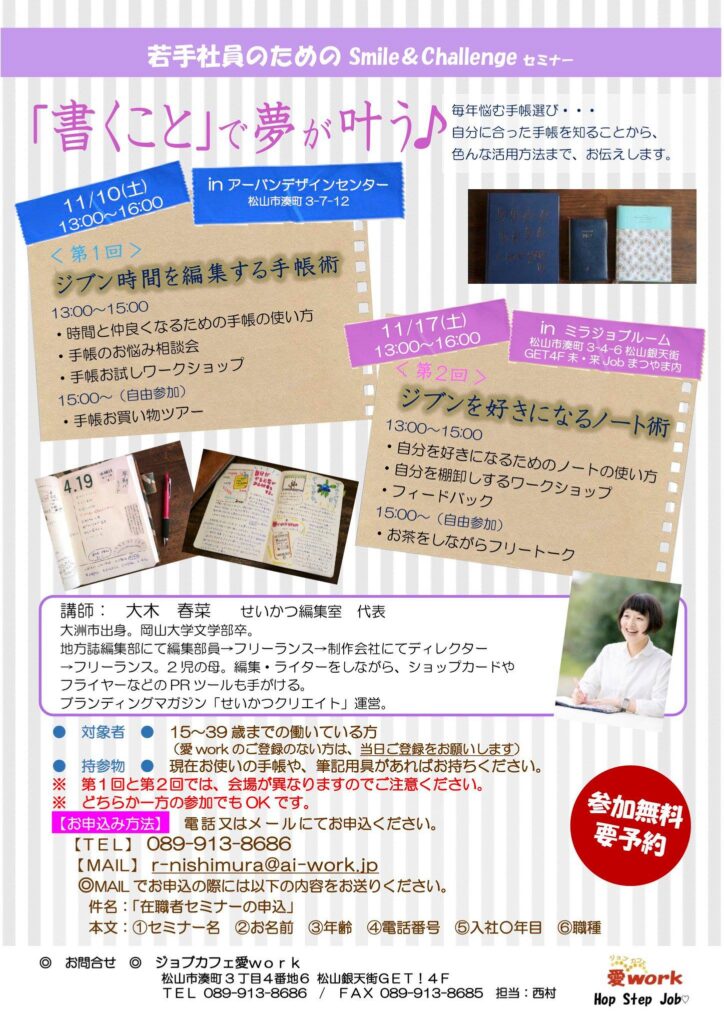 若手社員のための Smile＆Challenge セミナー
「書くこと」で夢が叶う♪
毎年悩む手帳選び・・・
自分に合った手帳を知ることから、
色んな活用方法まで、お伝えします。
11/10(土)
13:00～16:00
in アーバンデザインセンター
松山市湊町 3-7-12
＜ 第1回 ＞
ジブン時間を編集する手帳術
13:00～15:00
・時間と仲良くなるための手帳の使い方
・手帳のお悩み相談会
・手帳お試しワークショップ
15:00～（自由参加）
・手帳お買い物ツアー
11/17(土)
13:00～16:00
in ミラジョブルーム
松山市湊町 3-4-6 松山銀天街
GET4F 未・来 Job まつやま内
＜ 第2回 ＞
ジブンを好きになるノート術
13:00～15:00
・自分を好きになるためのノートの使い方
・自分を棚卸しするワークショップ
・フィードバック
15:00～（自由参加）
・お茶をしながらフリートーク
4.19
講師： 大木 春菜 せいかつ編集室 代表
大洲市出身。岡山大学文学部卒。
地方誌編集部にて編集部員→フリーランス→制作会社にてディレクター
→フリーランス。2児の母。編集・ライターをしながら、ショップカードや
フライヤーなどのPRツールも手がける。
ブランディングマガジン「せいかつクリエイト」運営。
● 対象者 ● 15～39歳までの働いている方
（愛workのご登録のない方は、当日ご登録をお願いします）
● 持参物 ● 現在お使いの手帳や、筆記用具があればお持ちください。
※ 第1回と第2回では、会場が異なりますのでご注意ください。
※ どちらか一方の参加でもOKです。
【お申込み方法】 電話又はメールにてお申込ください。
【TEL】 089-913-8686
【MAIL】 r-nishimura@ai-work.jp
◎MAILでお申込の際には以下の内容をお送りください。
件名：「在職者セミナーの申込」
本文：①セミナー名 ②お名前 ③年齢 ④電話番号 ⑤入社〇年目 ⑥職種
参加無料
要予約
◎ お問合せ ◎ ジョブカフェ愛work
松山市湊町3丁目4番地6 松山銀天街GET！4F
TEL 089-913-8686 / FAX 089-913-8685 担当：西村
ジョブカフェ
愛work
Hop Step Job♡